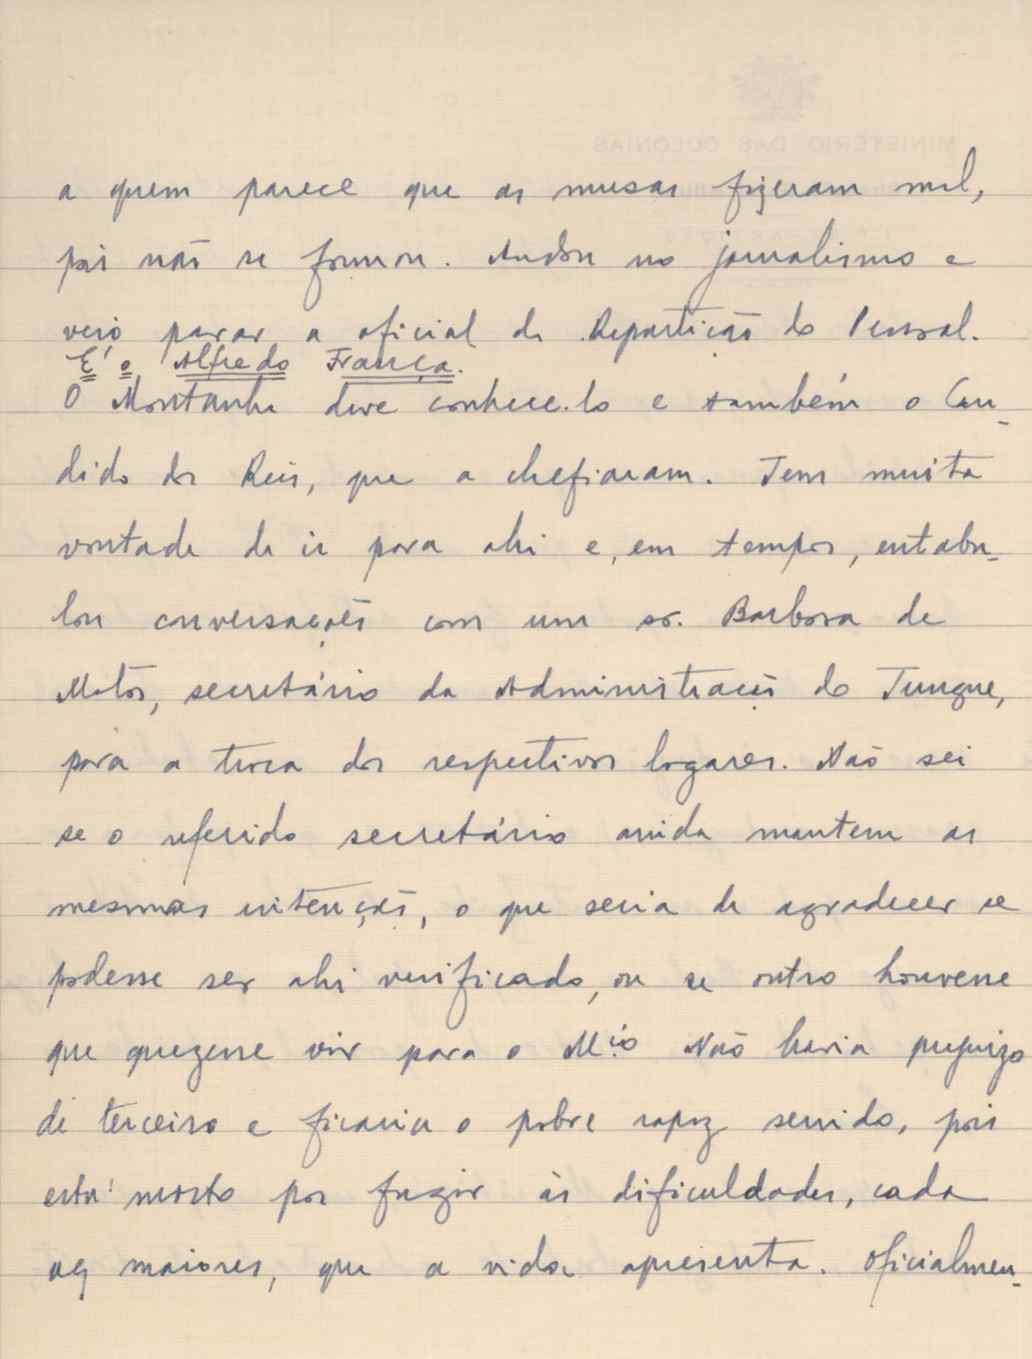 MINISTÉRIO DAS COLONIAS
a quem parece que as musas fizeram mal,
pois não se formou. Andou no jornalismo e
veio parar a oficial da Repartição do Pessoal.
E' o Alfredo França.
O Montanha deve conhece-lo e também o Can-
dido dos Reis, que a chefiaram. Tem muita
vontade de ir para ahi e, em tempos, entabu-
lou conversações com um sr. Barbosa de
Matos, secretário da Administração do Tungue,
para a troca dos respectivos logares. Não sei
se o referido secretário ainda mantem as
mesmas intenções, o que seria de agradecer se
podesse ser ahi verificado, ou se outro houvesse
que quezesse vir para o M.io Não havia prejuizo
de terceiro e ficaria o pobre rapaz servido, pois
está morto por fugir às dificuldades, cada
vez maiores, que a vida apresenta. Oficialmen-